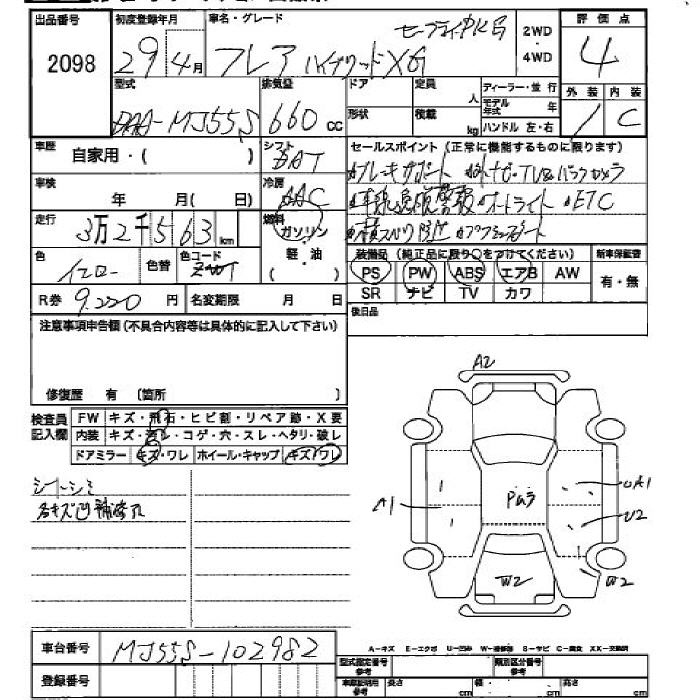 出品番号 初度登録年月 車名・グレード セーフティPKG 2WD ・ 4WD 評価点
2098 29年4月 フレア ハイブリッドXG 4
型式 排気量 ドア 定員 人 ディーラー・並行 外装 内装
DAA-MJ55S 660cc 形状 積載 kg モデル年式 ハンドル 左・右 C
車歴 自家用・( ) シフト セールスポイント(正常に機能するものに限ります)
車検 年 月( 日) 冷房 AAC
オートライト ETC
走行 3万2千563km 燃料 ガソリン 軽・油 ( )
装備品(純正品に限り○をつけてください) 新車保証書
色 イエロー 色替 色コード ZWT PS PW ABS エアB AW 有・無
R券 9.220円 名変期限 月 日 SR ナビ TV カワ
注意事項申告欄(不具合内容等は具体的に記入して下さい) 後日品
修復歴 有 〔箇所 〕
検査員記入欄 FW キズ・飛石・ヒビ割・リペア跡・X要
内装 キズ・コゲ・穴・スレ・ヘタリ・破レ
ドアミラー キズ・ワレ ホイール・キャップ キズ・ワレ
シートシミ
各キズ凹補修爪
A2
A1
UA1
U2
W2
W2
車台番号 MJ55S-102982
A-キズ E-エクボ U-凹み W-補修跡 S-サビ C-腐食 XX-交換済
登録番号 型式指定番号 参考 類別区分番号
車庫証明用 参考 長さ cm 幅 cm 高さ cm